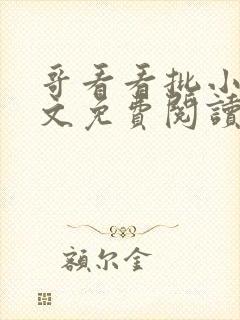 哥看看批小
文免費閱讀
額尔金